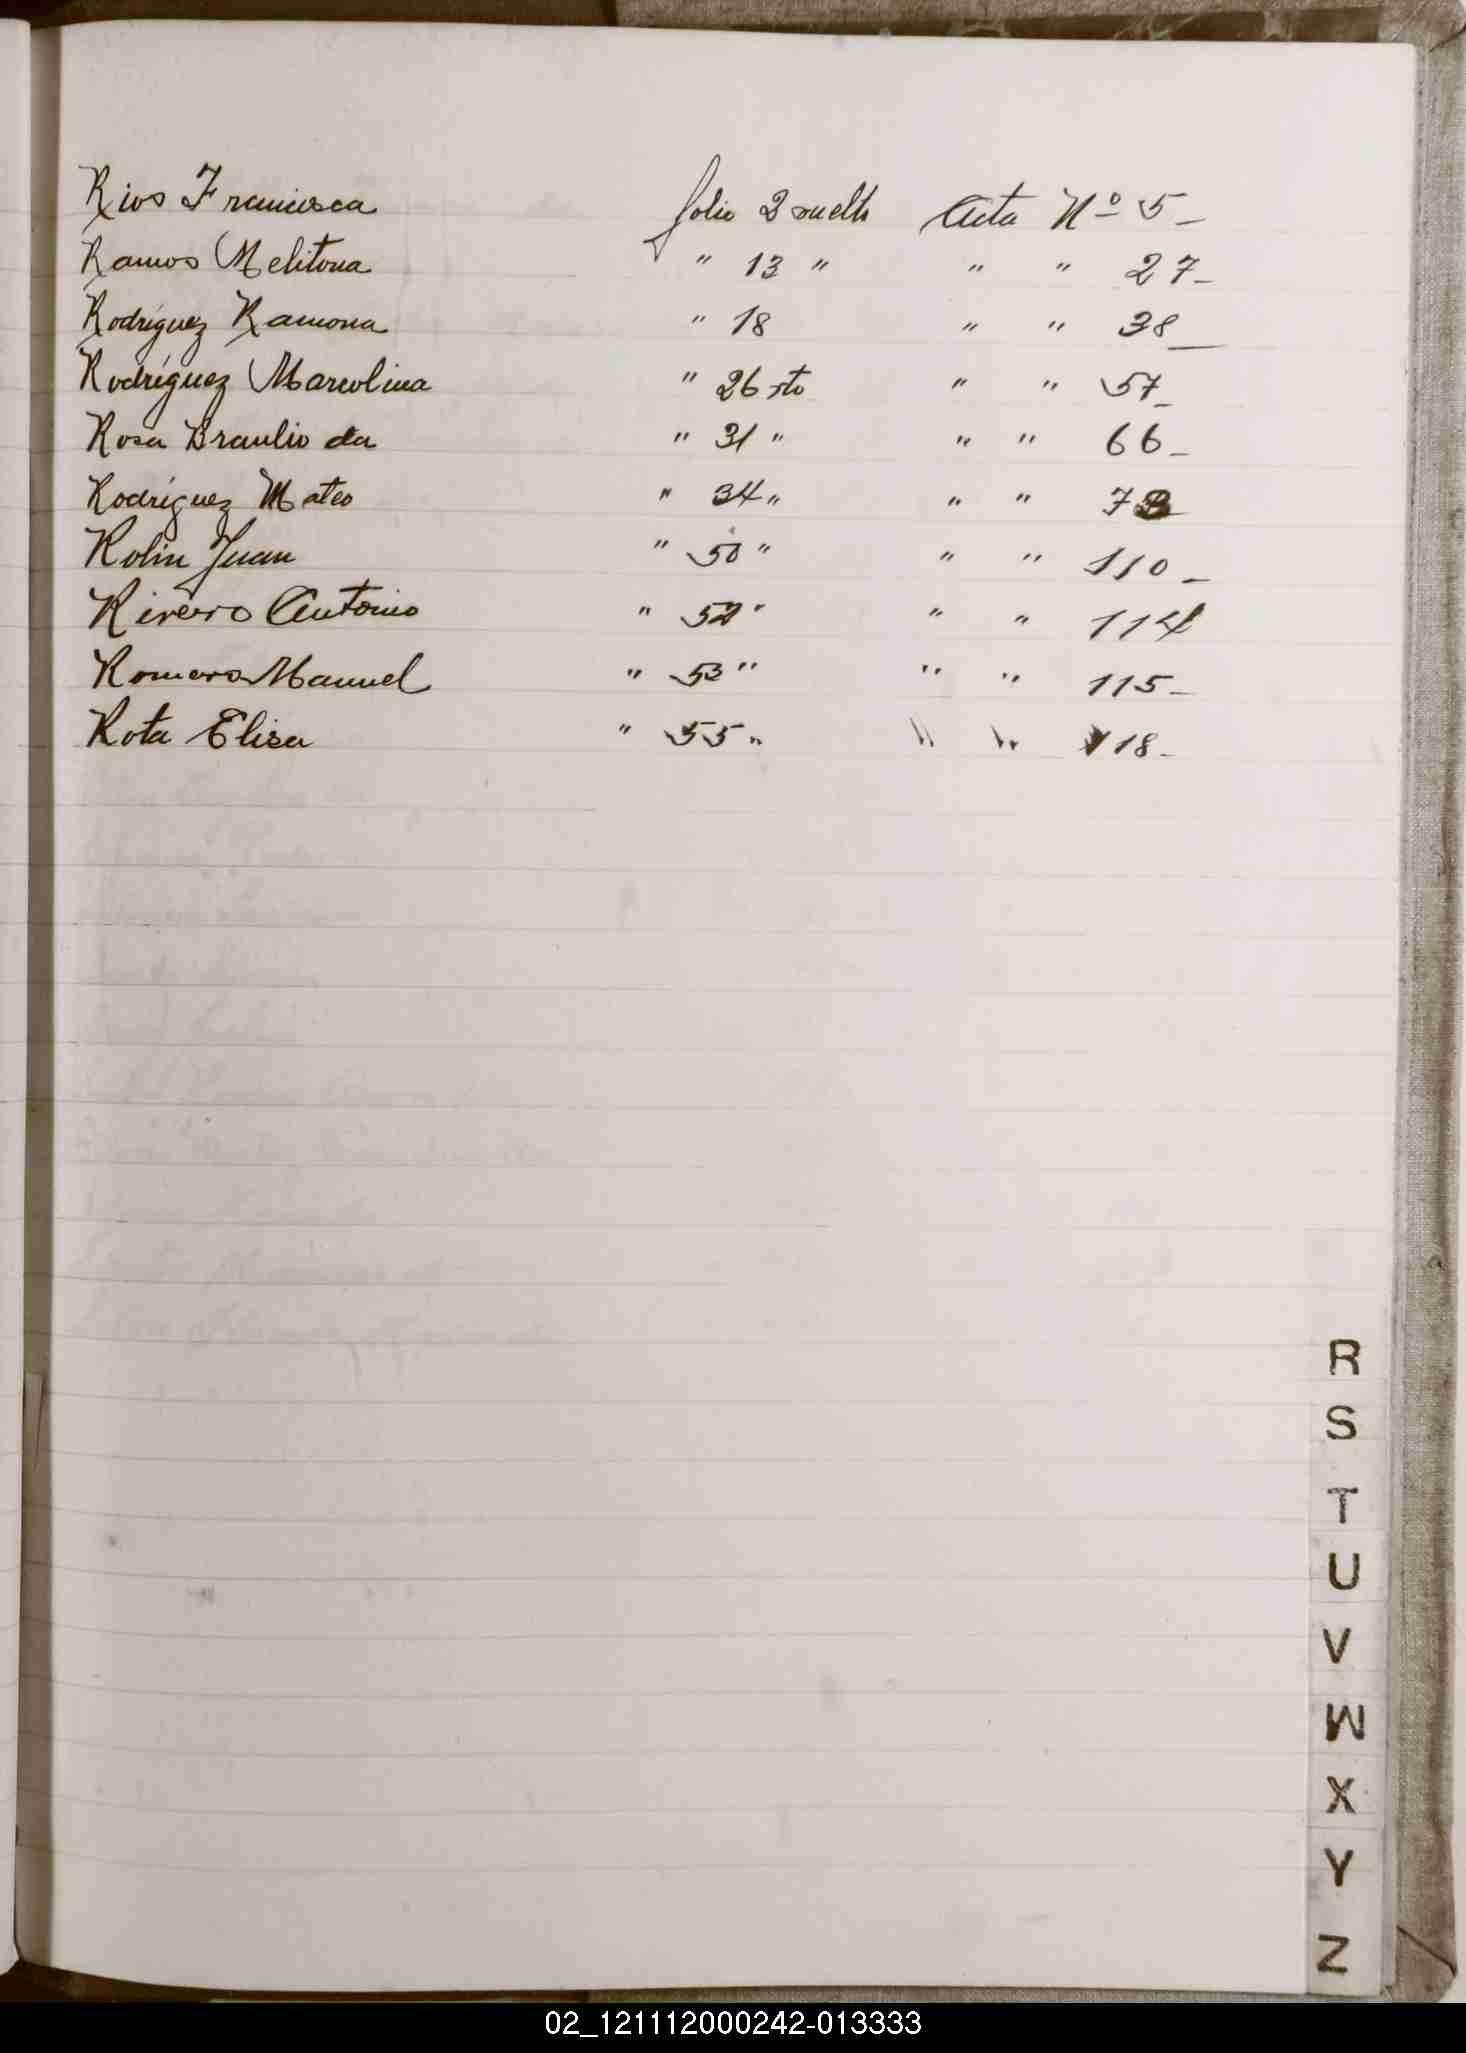 Rios Francisca folio 2 vuelto Acta Nº 5-
Ramos Melitona " 13 " " " 27-
Rodríguez Ramona " 18 " " 38-
Rodríguez Marcolina " 26 vto " " 57-
Rosa Braulio da " 31 " " " 66-
Rodríguez Mateo " 34 " " " 73
Rolin Juan " 50 " " " 110-
Rivero Antonio " 52 " " " 114
Romero Manuel " 53 " " " 115-
Rota Elisa " 55 " " " 118-
R
S
T
U
V
W
X
Y
Z
02_121112000242-013333